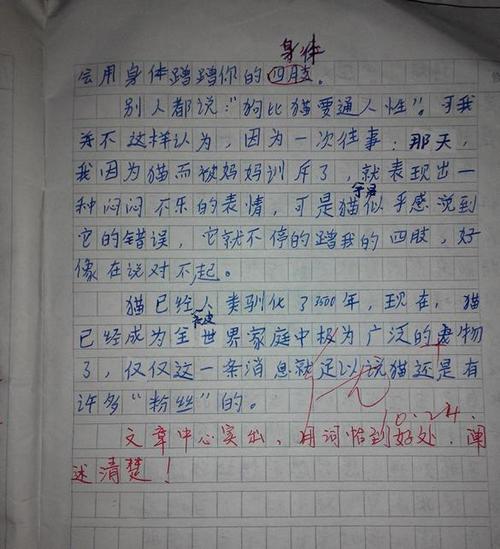 身体
会用身体蹭蹭你的四肢。
别人都说："狗比猫要通人性"。可我
并不这样认为，因为一次往事：那天，
我因为猫而被妈妈训斥了，就表现出一
种闷闷不乐的表情，可是猫似乎感觉到
它的错误，它就不停的蹭我的四肢，好
像在说对不起。
猫已经人类驯化了3500年，现在，猫
已经成为全世界家庭中极为广泛的宠物
了，仅仅这一条消息就足以说猫还是有
许多"粉丝"的。
优
10.24.
文章中心突出，用词恰到好处，阐
述清楚！